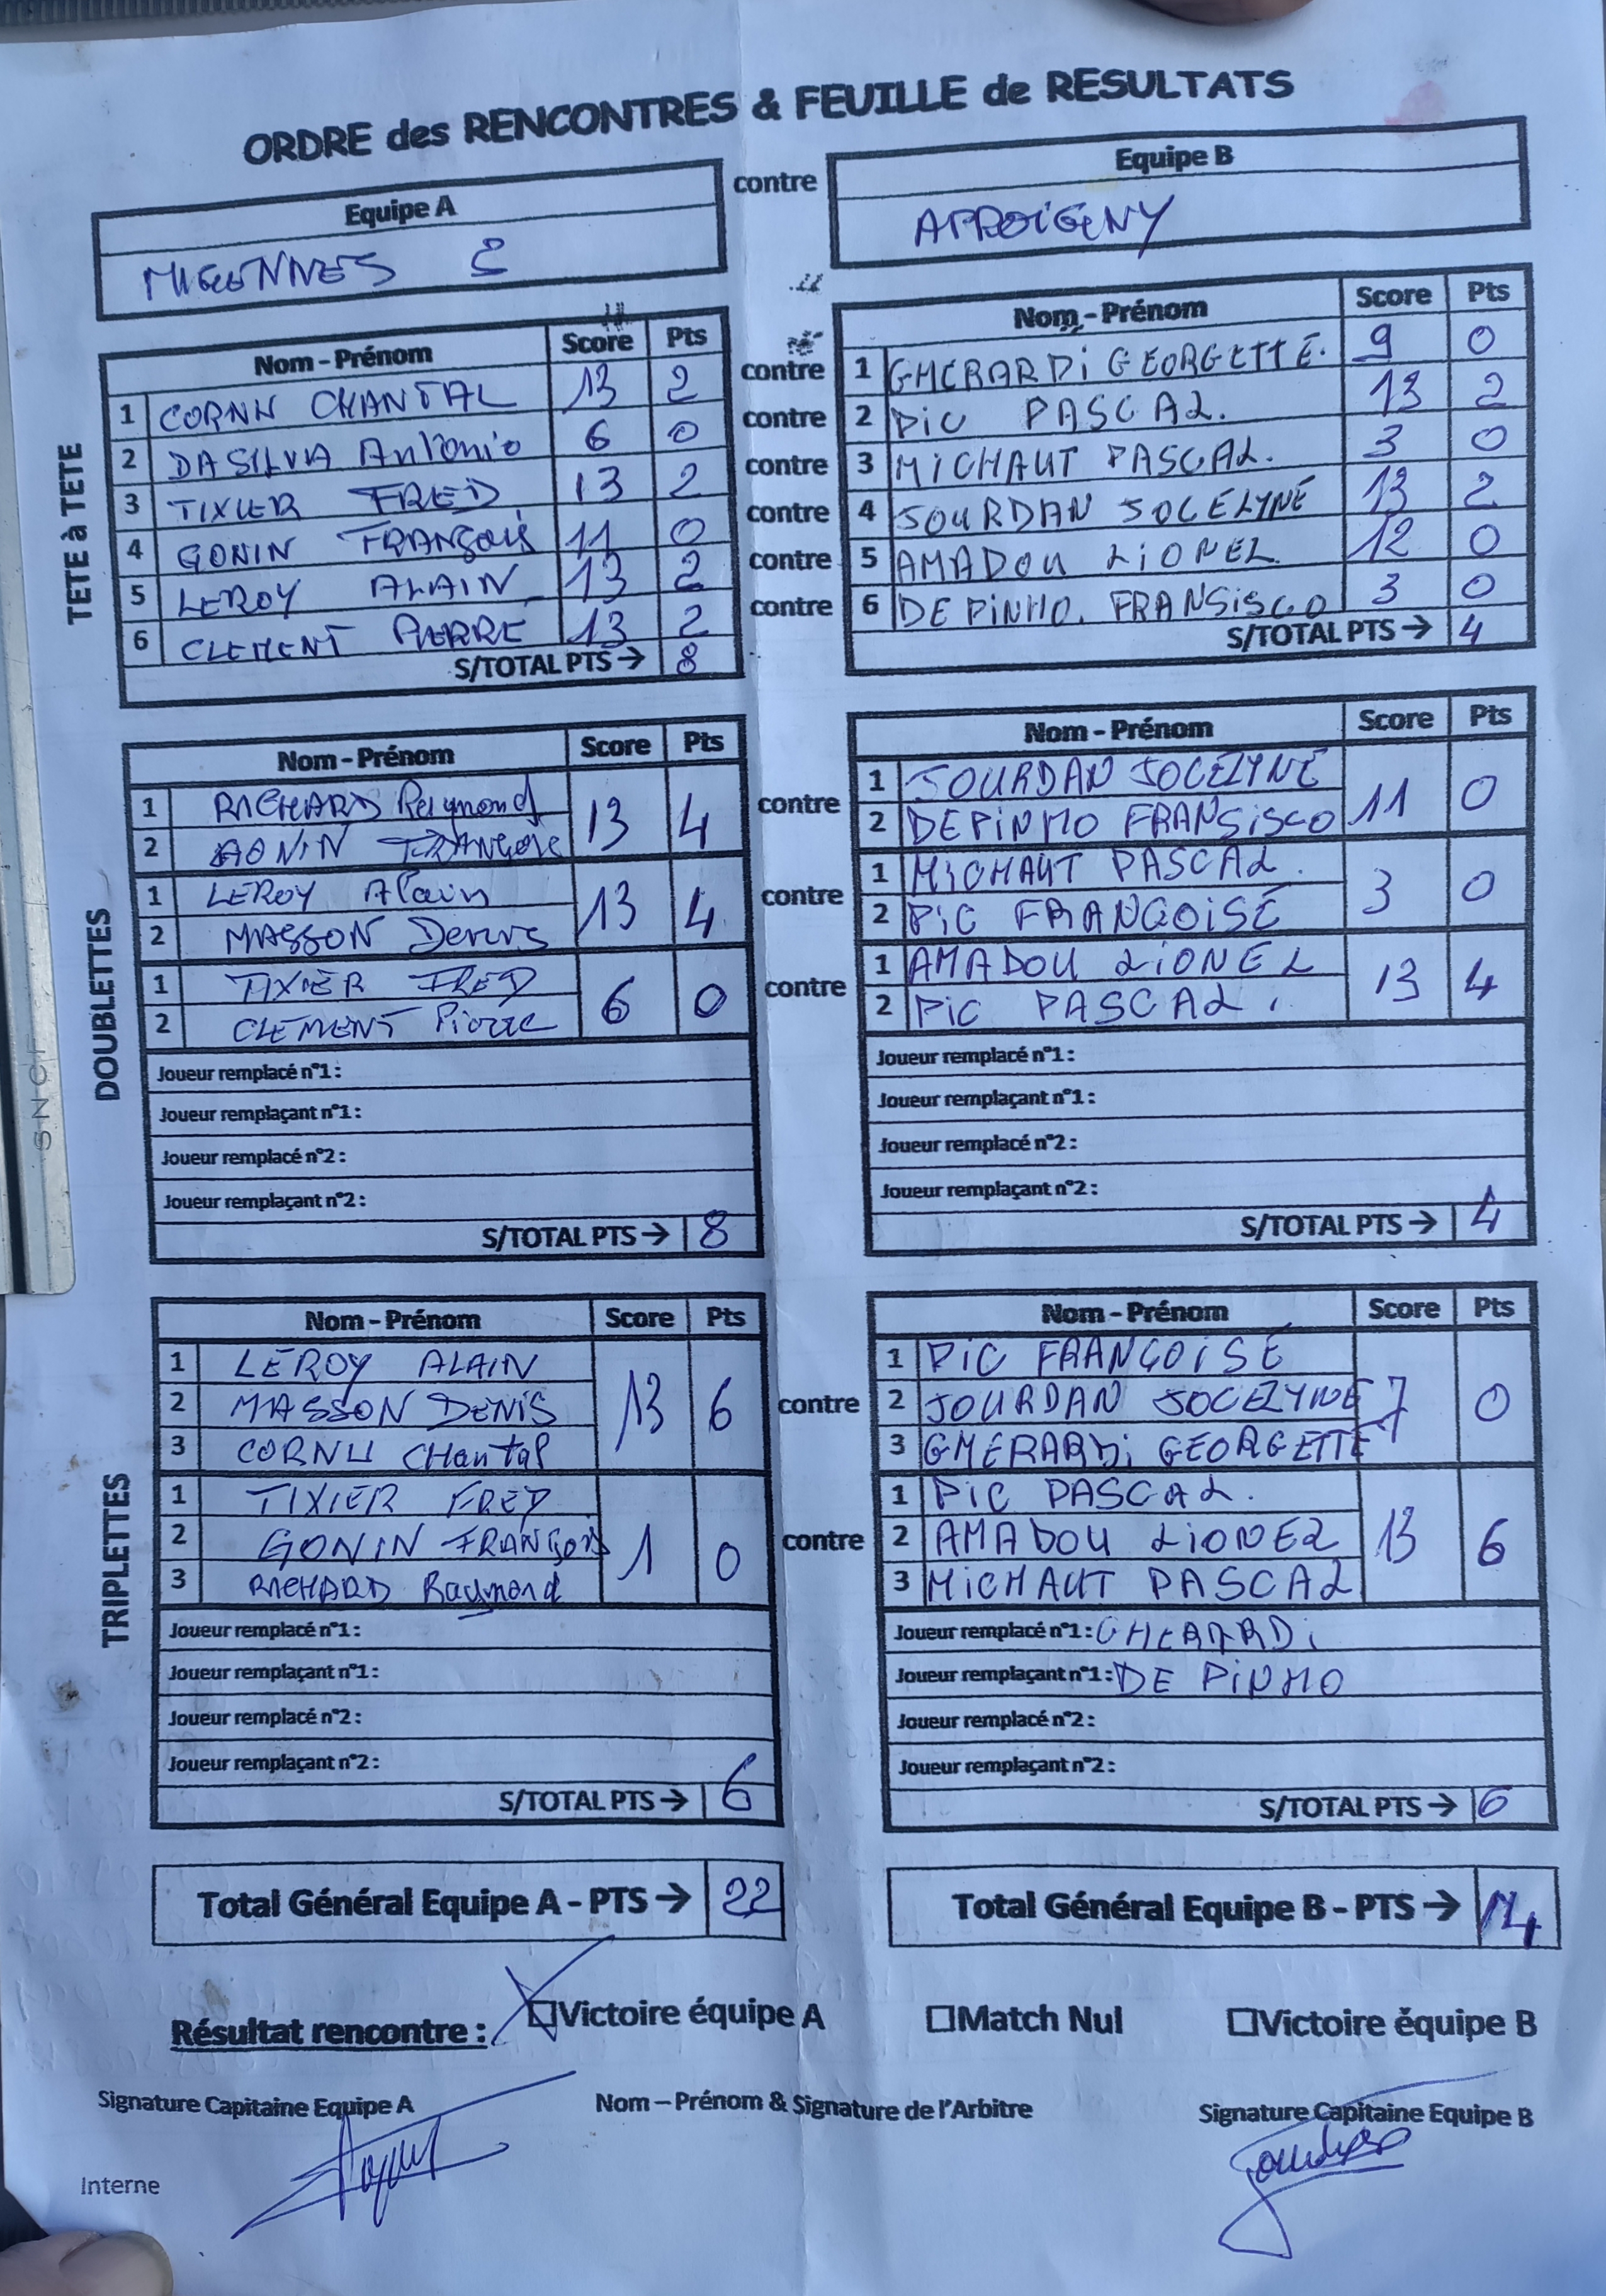 ORDRE des RENCONTRES & FEUILLE de RESULTATS
Equipe A contre Equipe B
MIGENNES 2 APPOIGNY
TETE à TETE
Nom - Prénom Score Pts Nom - Prénom Score Pts
1 CORNU CHANTAL 13 2 contre 1 GHERARDI GEORGETTE. 9 0
2 DASILVA Antonio 6 0 contre 2 PIC PASCAL. 13 2
3 TIXIER FRED 13 2 contre 3 MICHAUT PASCAL. 3 0
4 GONIN FRANÇOIS 11 0 contre 4 JOURDAN JOCELYNE 13 2
5 LEROY ALAIN 13 2 contre 5 AMADOU LIONEL 12 0
6 CLEMENT PIERRE 13 2 contre 6 DE PINHO. FRANSISCO 3 0
S/TOTAL PTS → 8 S/TOTAL PTS → 4
DOUBLETTES
Nom - Prénom Score Pts Nom - Prénom Score Pts
1 RICHARD Raymond 13 4 contre 1 JOURDAN JOCELYNE 11 0
2 GONIN FRANÇOIS 2 DEPINHO FRANSISCO
1 LEROY Alain 13 4 contre 1 MICHAUT PASCAL. 3 0
2 MASSON Denis 2 PIC FRANÇOISE
1 TIXIER FRED 6 0 contre 1 AMADOU LIONEL 13 4
2 CLEMENT Pierre 2 PIC PASCAL.
Joueur remplacé n°1 : Joueur remplacé n°1 :
Joueur remplaçant n°1 : Joueur remplaçant n°1 :
Joueur remplacé n°2 : Joueur remplacé n°2 :
Joueur remplaçant n°2 : Joueur remplaçant n°2 :
S/TOTAL PTS → 8 S/TOTAL PTS → 4
SNCF
TRIPLETTES
Nom - Prénom Score Pts Nom - Prénom Score Pts
1 LEROY ALAIN 13 6 contre 1 PIC FRANÇOISE 7 0
2 MASSON DENIS 2 JOURDAN JOCELYNE
3 CORNU CHantal 3 GHERARDI GEORGETTE
1 TIXIER FRED 1 0 contre 1 PIC PASCAL. 13 6
2 GONIN FRANÇOIS 2 AMADOU LIONEL
3 RICHARD Raymond 3 MICHAUT PASCAL
Joueur remplacé n°1 : Joueur remplacé n°1 : GHERARDI
Joueur remplaçant n°1 : Joueur remplaçant n°1 : DE PINHO
Joueur remplacé n°2 : Joueur remplacé n°2 :
Joueur remplaçant n°2 : Joueur remplaçant n°2 :
S/TOTAL PTS → 6 S/TOTAL PTS → 6
Total Général Equipe A - PTS → 22 Total Général Equipe B - PTS → 14
Résultat rencontre : Victoire équipe A Match Nul Victoire équipe B
Signature Capitaine Equipe A Nom – Prénom & Signature de l'Arbitre Signature Capitaine Equipe B
Interne